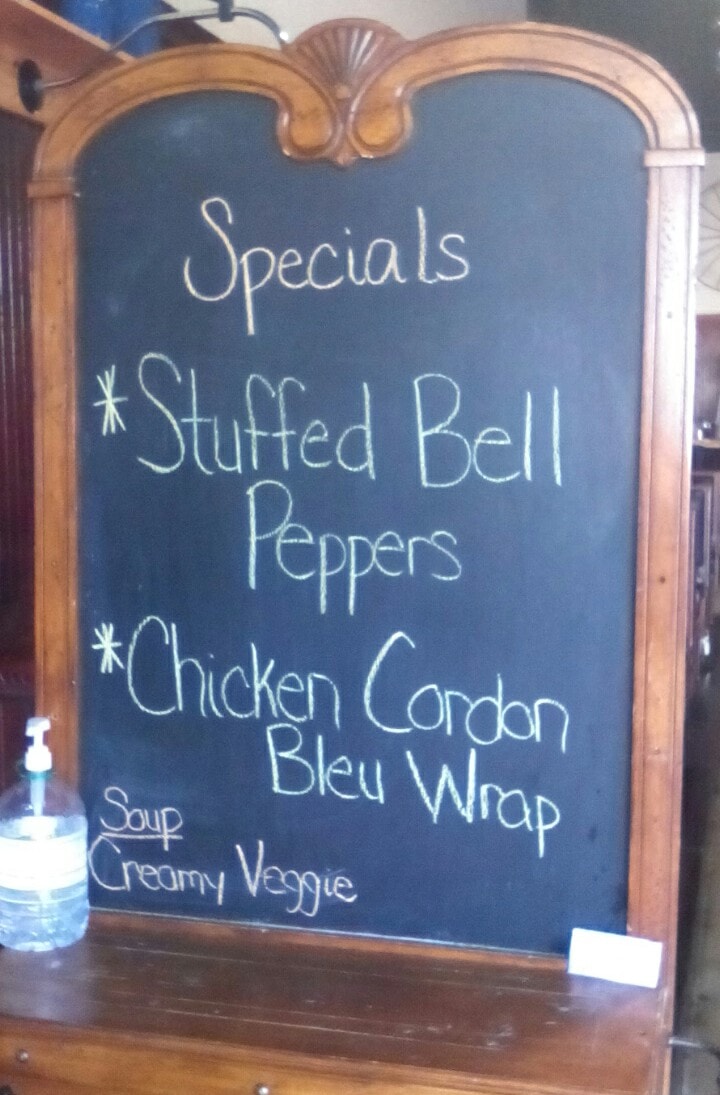 Specials
*Stuffed Bell
Peppers
*Chicken Cordon
Bleu Wrap
Soup
Creamy Veggie